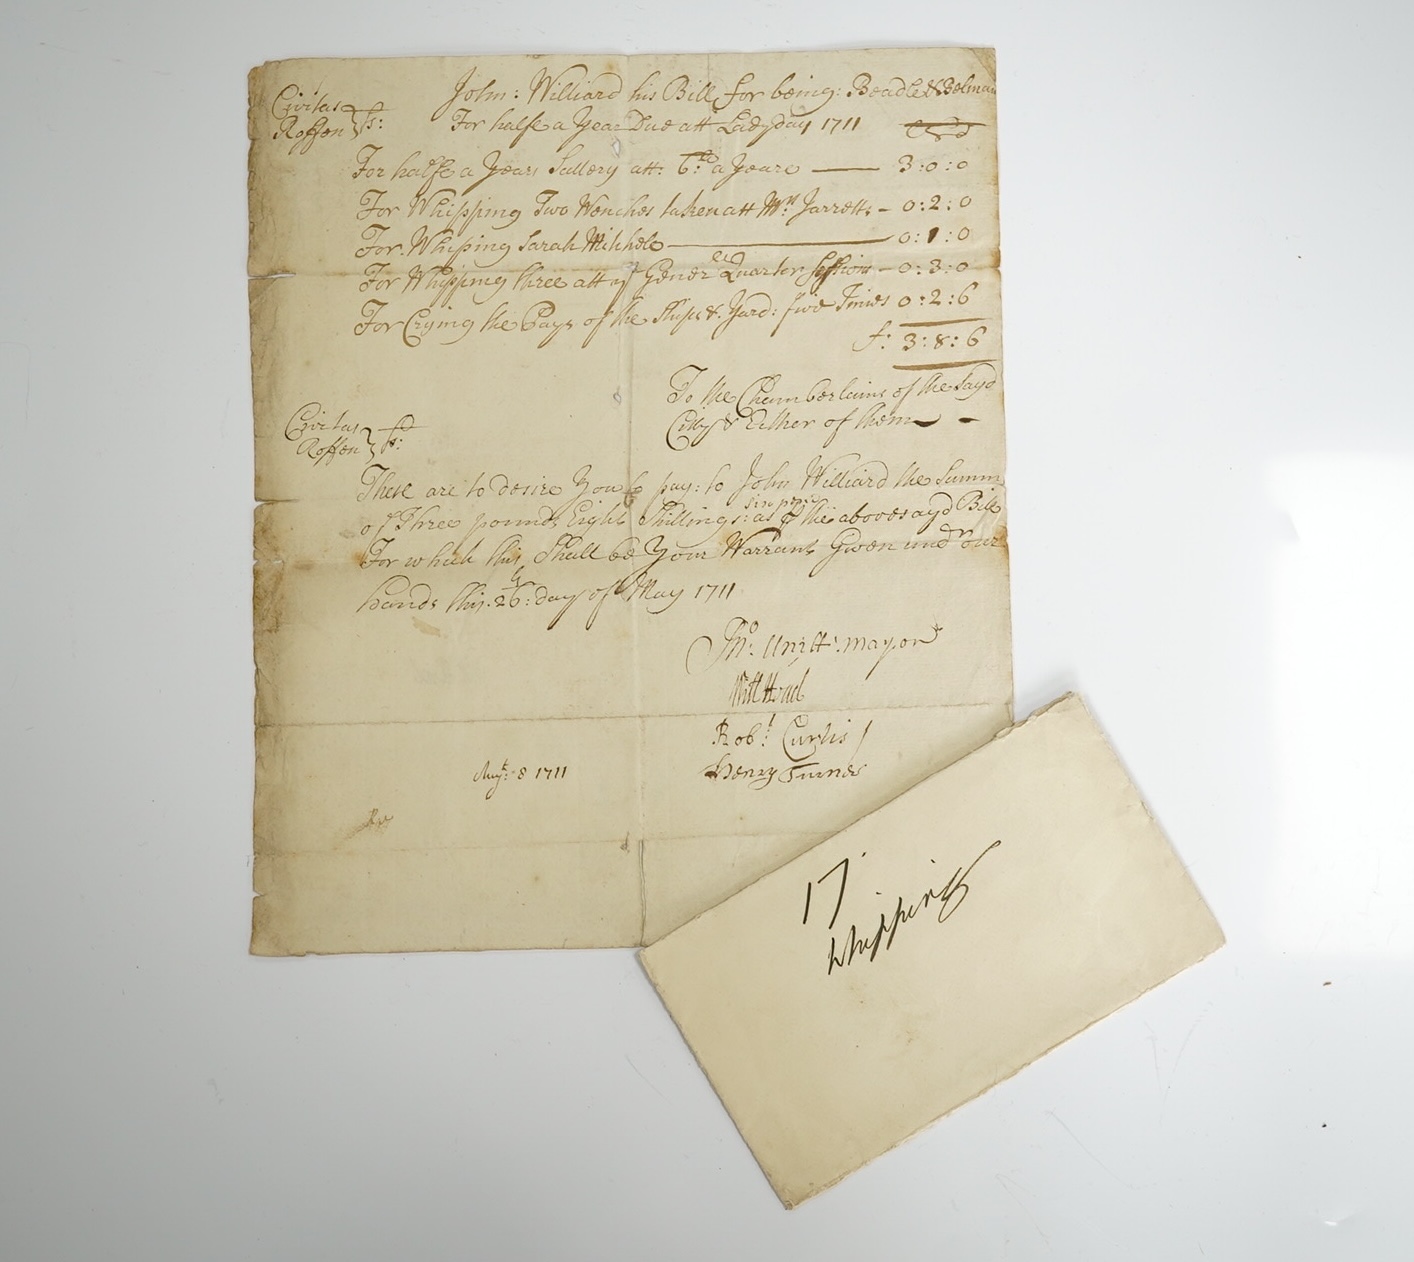 Civitas
Roffen } ss:
John: Williard his Bill for being: Beadle & Belman
For halfe a Year Due att Ladyday 1711
For halfe a Years Sallery att: 6: a Yeare — 3:0:0
For Whipping Two Wenches taken att Mrs Jarretts - 0:2:0
For Whiping Sarah Mihhols — 0:1:0
For Whipping three att ye Generll Quarter Session - 0:3:0
For Crying the Pays of the Ships & Yard: five Times 0:2:6
£: 3:8:6
To the Chamberlains of the Sayd
Citty & Either of them — -
Civitas
Roffen } ss:
These are to desire You to pay: to John Williard the Summ
of Three pounds Eight Shillings: six pence as p the abovesayd Bill
For which this Shall be Your Warrant Given undr our
hands this. 26: day of May 1711
Tho: Unitt: mayor
Will Head
Robt: Curtis
Henry Turner
8 1711
17
Whipping